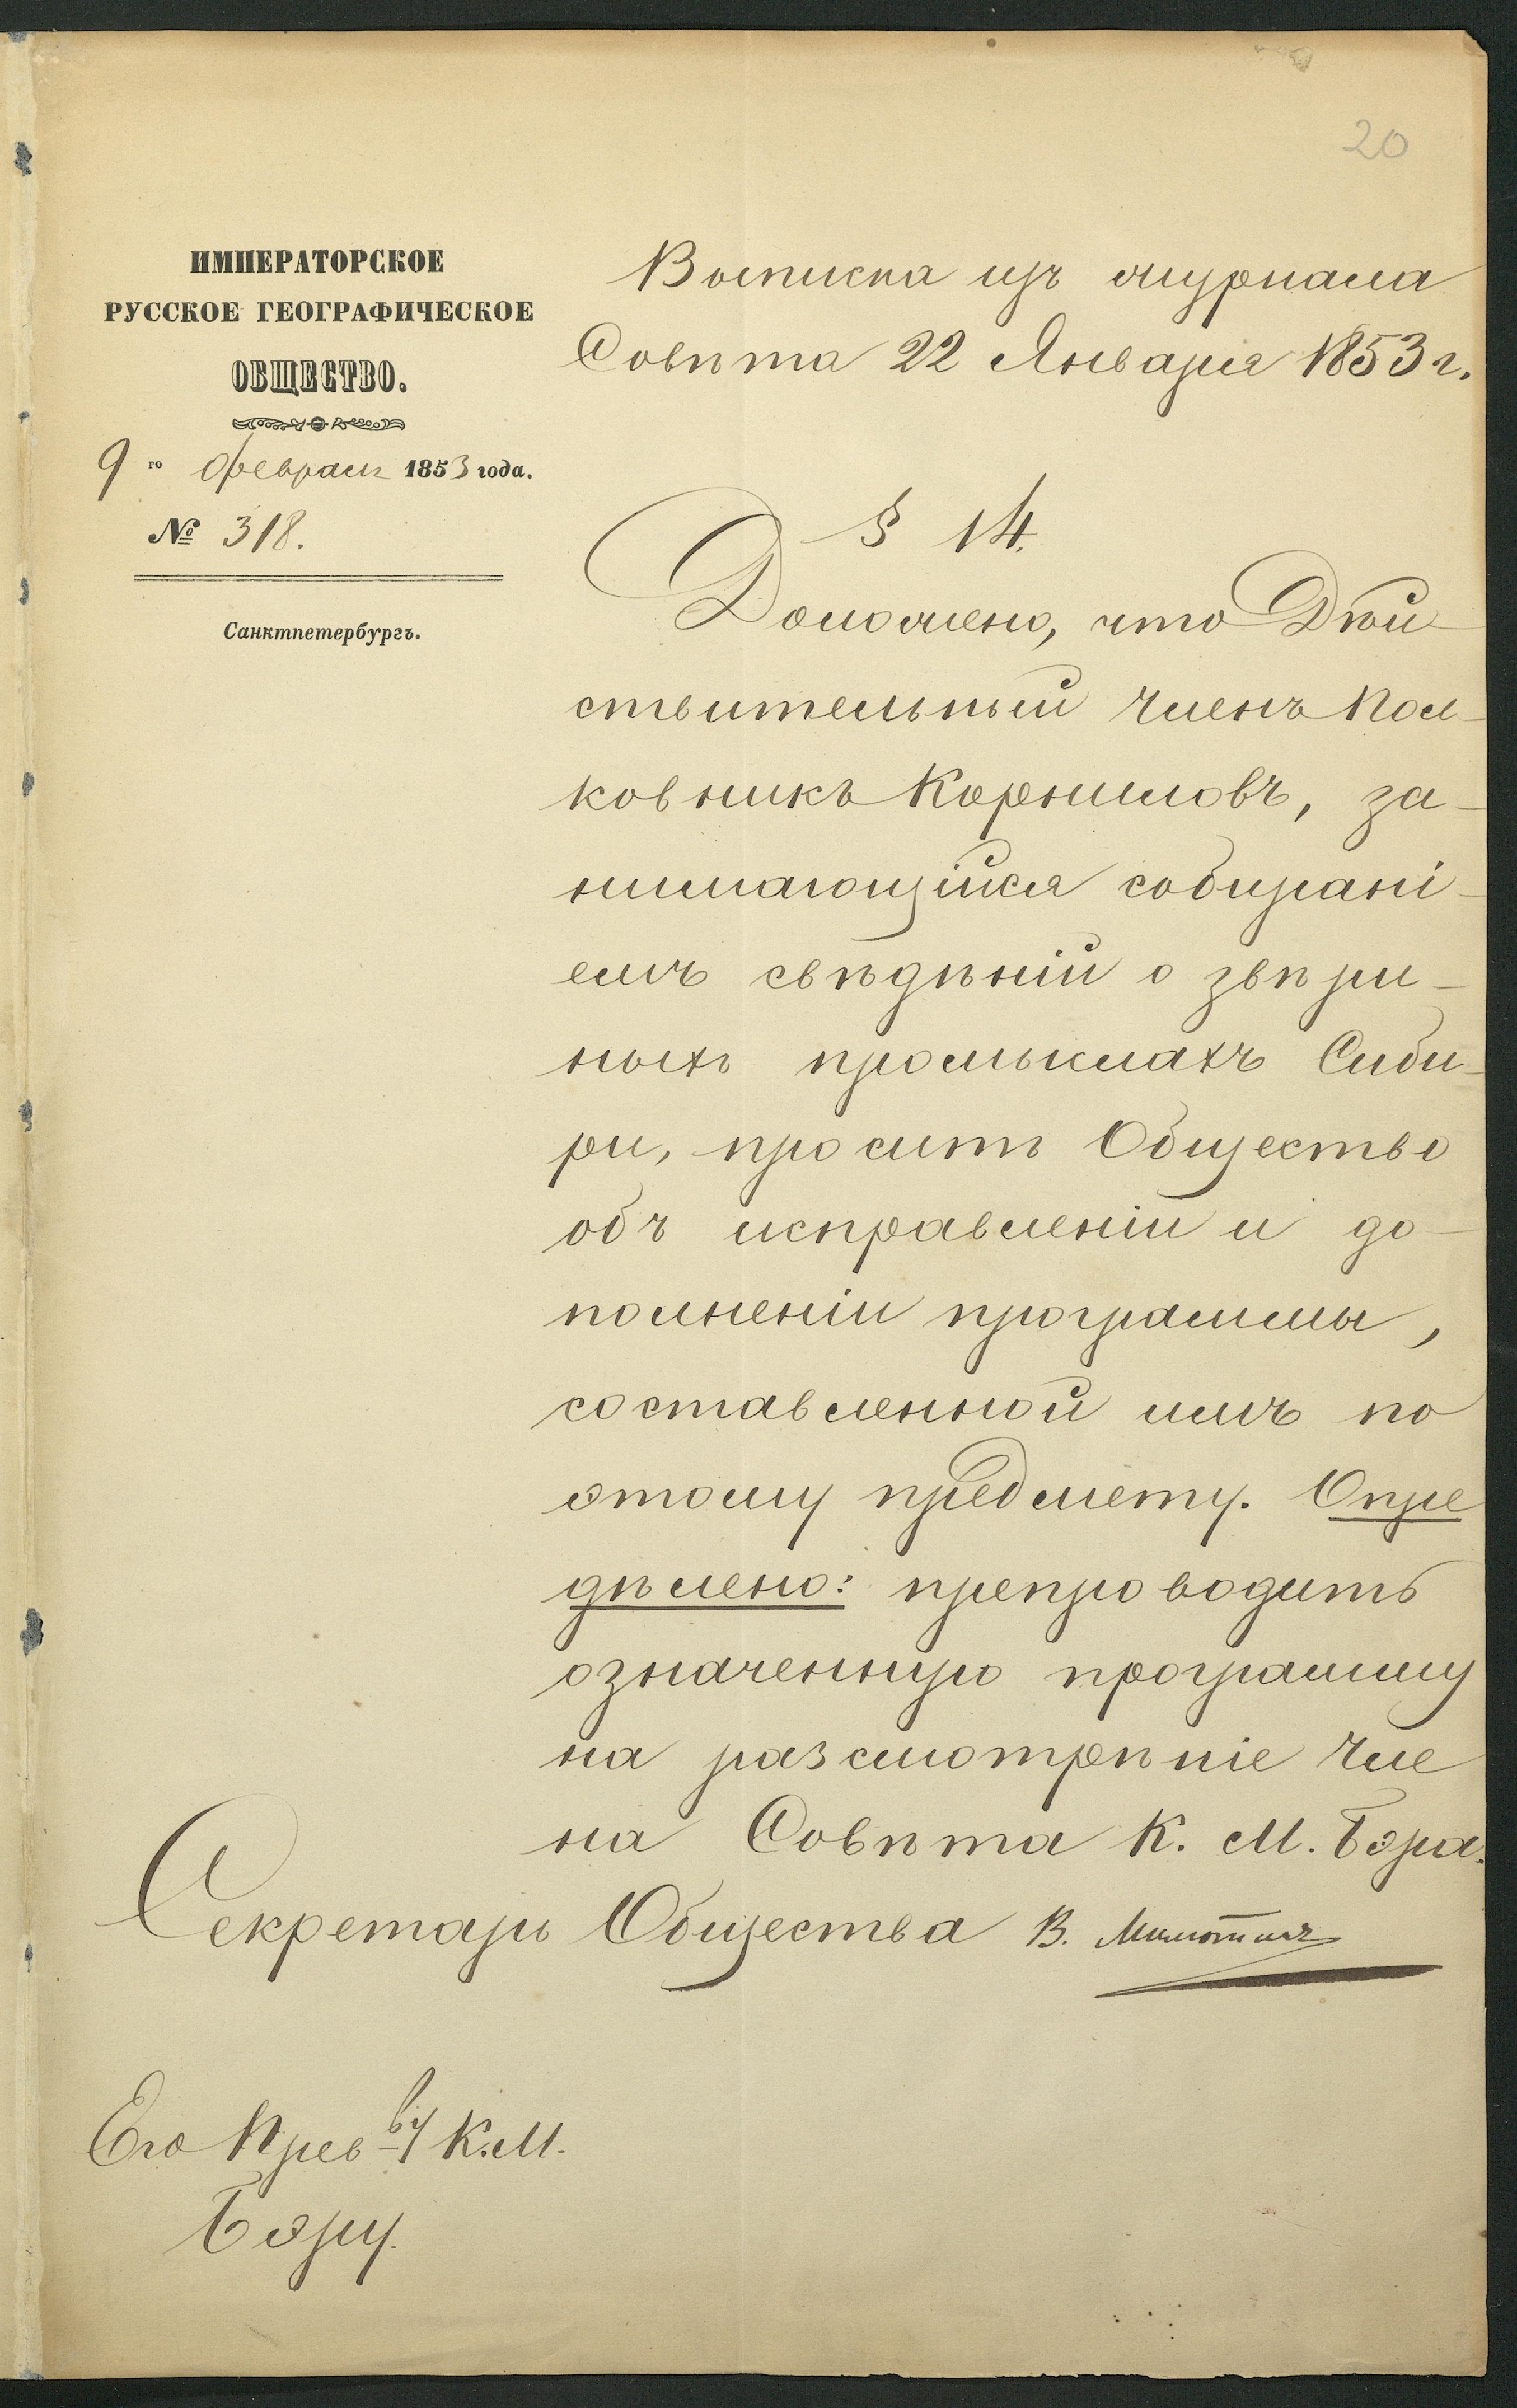 20
ИМПЕРАТОРСКОЕ
РУССКОЕ ГЕОГРАФИЧЕСКОЕ
ОБЩЕСТВО.
9 го Февраля 1853 года.
№ 318.
Санктпетербургъ.
Выписка изъ журнала
Совѣта 22 Января 1853 г.
§ 14.
Доложено, что Дѣй-
ствительный Членъ Пол-
ковникъ Корниловъ, за-
нимающійся собирані-
емъ свѣдѣній о звѣри-
ныхъ промыслахъ Сиби-
ри, проситъ Общество
объ исправленіи и до-
полненіи программы,
составленной имъ по
этому предмету. Опре
дѣлено: препроводить
означенную программу
на разсмотрѣніе Чле
на Совѣта К. М. Бэра.
Секретарь Общества В. Милютинъ
Его Прев-ву К. М.
Бэру.